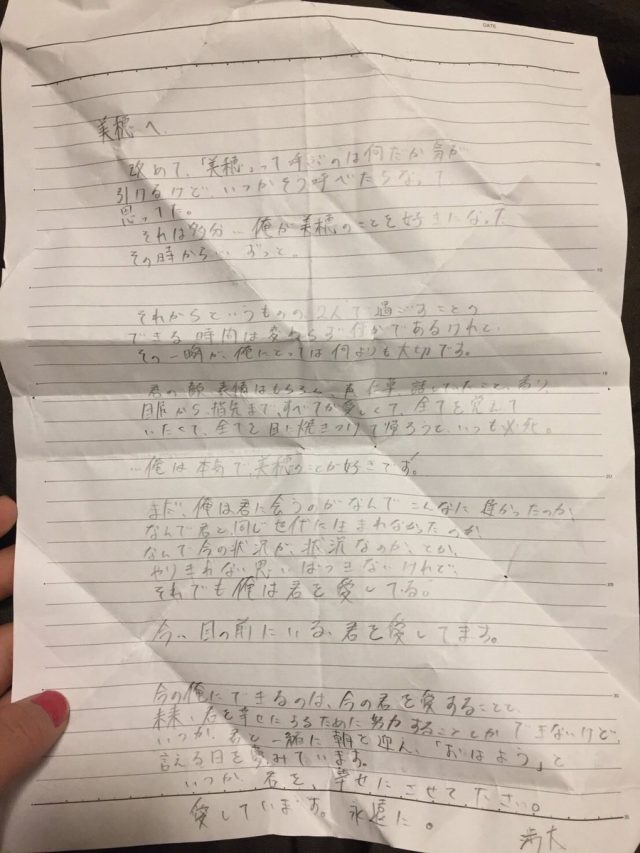 DATE
美穂へ
改めて、「美穂」って呼ぶのは何だか気が
引けるけど、いつかそう呼べたらなって
思ってた。
それは多分…俺が美穂のことを好きになった
その時から…ずっと。
それからというものの2人で過ごすことの
できる時間は変わらず僅かであるけれど、
その一瞬が、俺にとっては何よりも大切です。
君の顔、表情はもちろん、声に 話していたこと、香り、
目尻から、指先まで、すべてが愛しくて、全てを覚えて
いたくて、全てを目に焼きつけて帰ろうと、いつも必死。
…俺は本気で美穂のことが好きです。
まだ、俺は君に会うのがなんでこんなに遅かったのか、
なんで君と同じ世代に生まれなかったのか、
なんで今の状況が、状況なのか、とか、
やりきれない思いはつきないけれど、
それでも俺は君を愛してる。
今、目の前にいる、君を愛してます。
今の俺にできるのは、今の君を愛することと、
未来、君を幸せにするために努力することしかできないけど、
いつか、君と一緒に朝を迎え、「おはよう」と
言える日を夢みています。
いつか、君を、幸せにさせてください。
愛しています。永遠に。